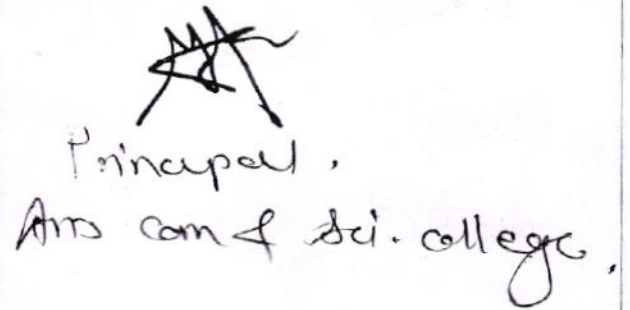 Principal.
Arts com & Sci. college,